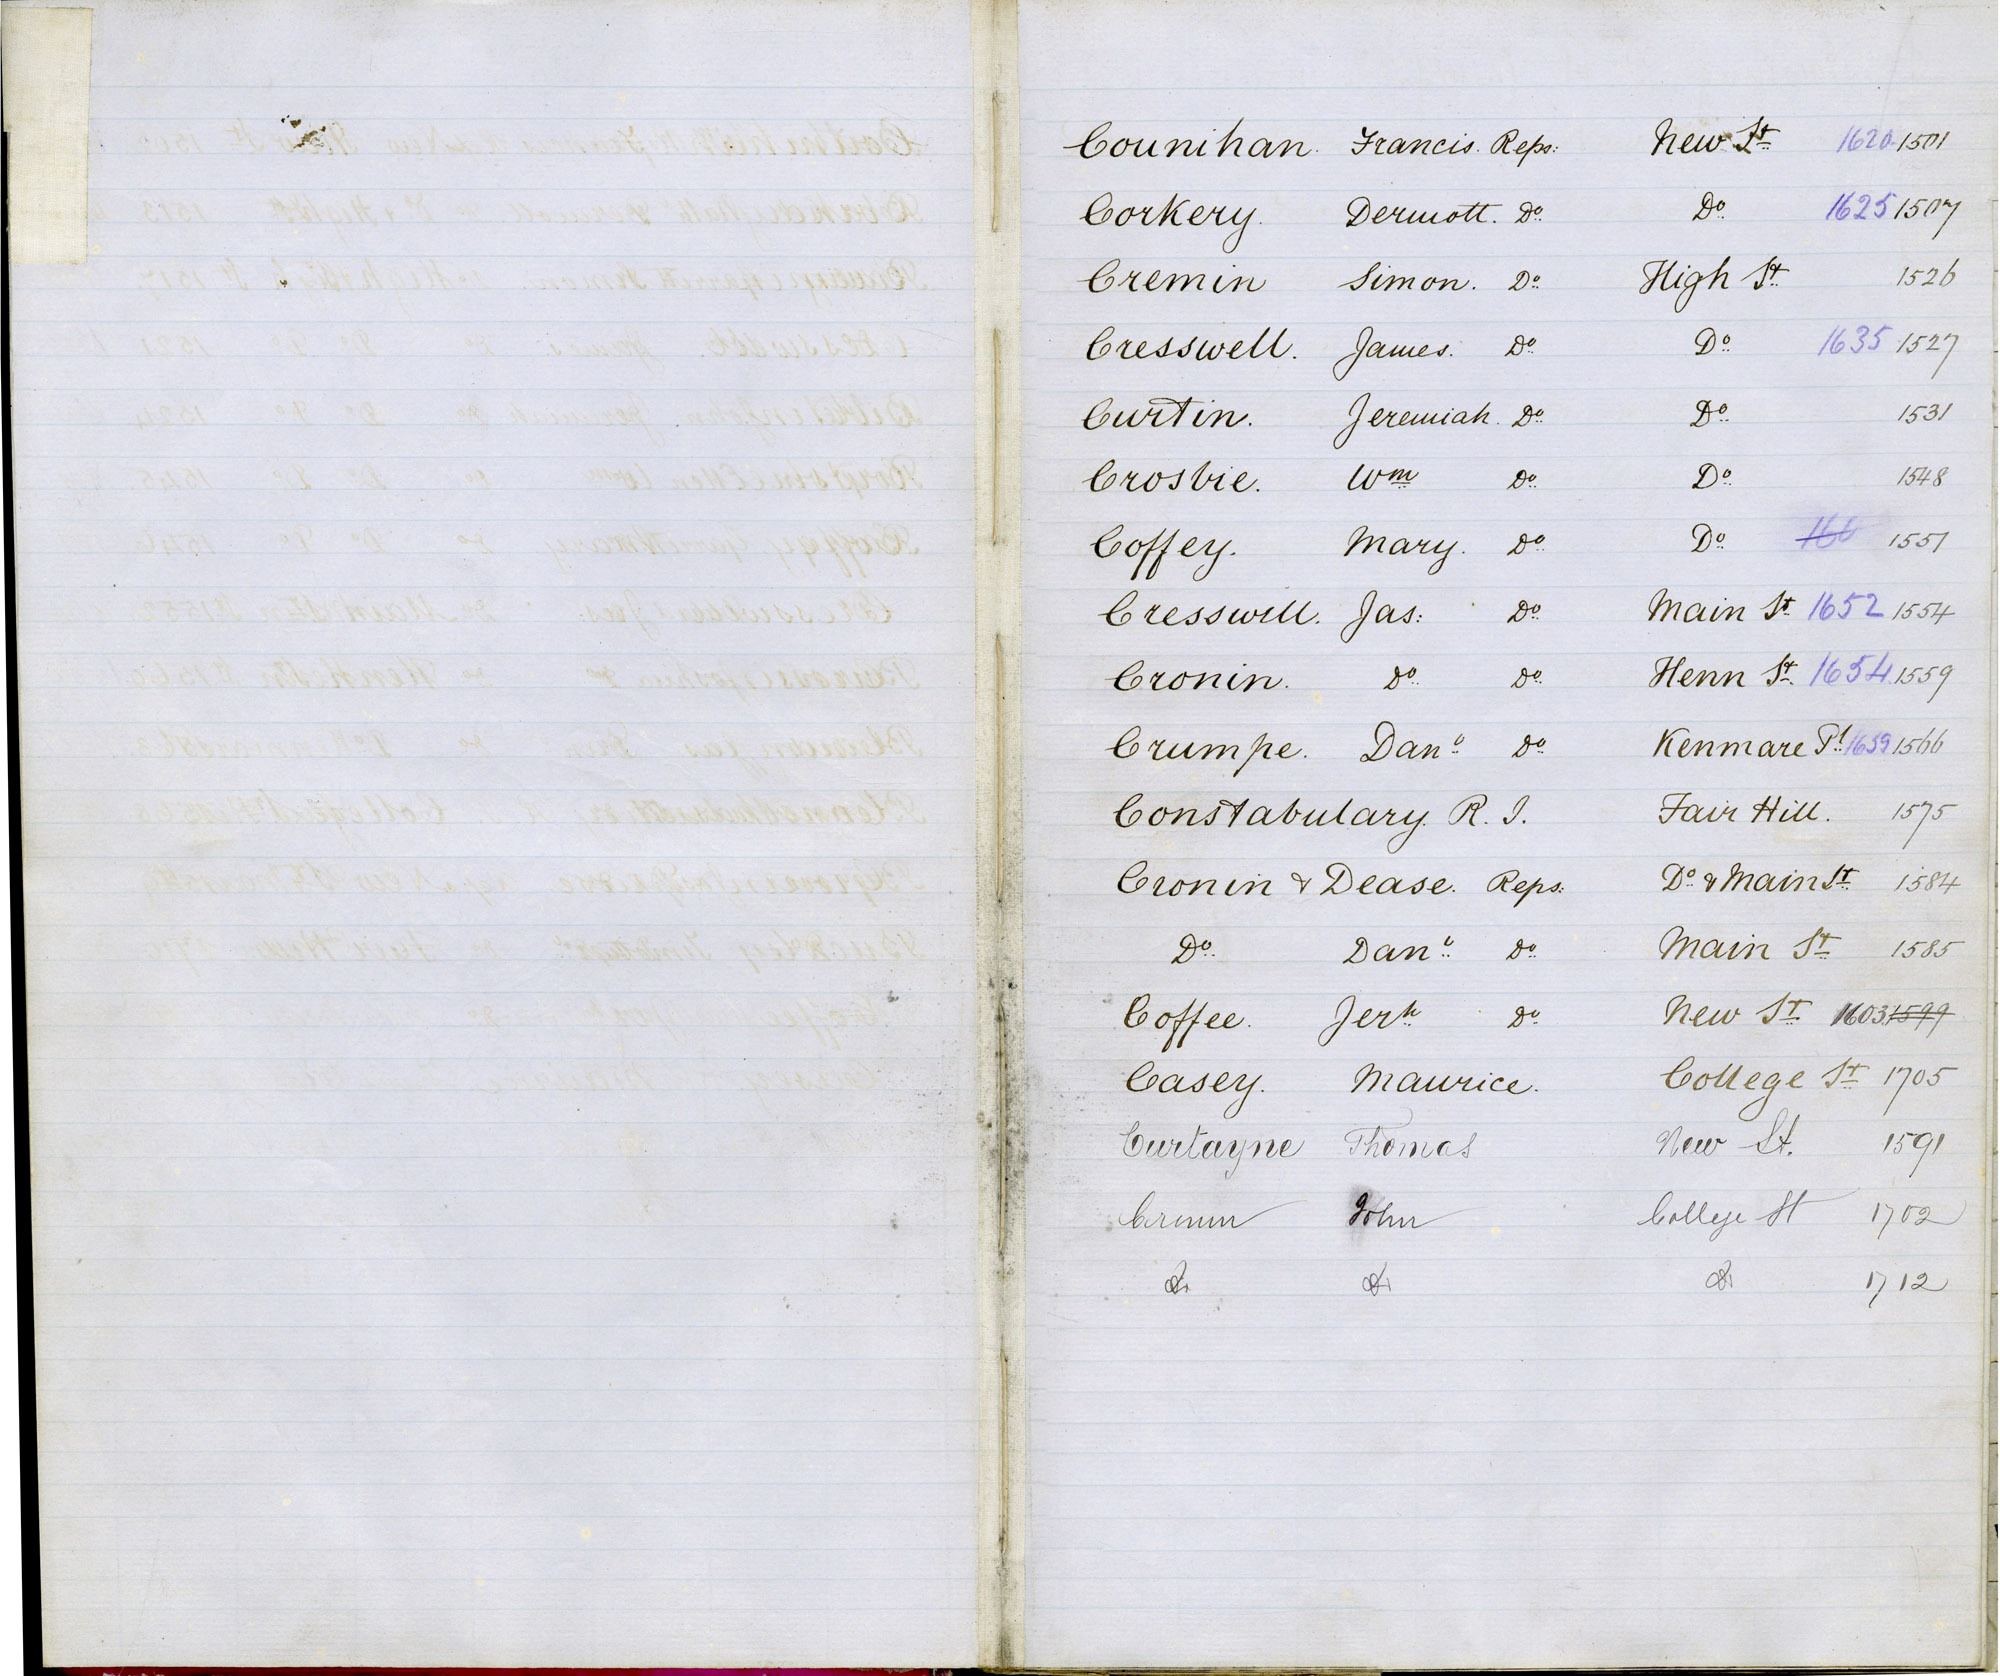 Counihan. Francis. Reps: New St 1620 1501
Corkery. Dermott. Do Do 1625 1507
Cremin Simon. Do High St 1526
Cresswell. James. Do Do 1635 1527
Curtin. Jeremiah. Do Do 1531
Crosbie. Wm Do Do 1548
Coffey. Mary. Do Do 166 1551
Cresswell. Jas: Do Main St 1652 1554
Cronin. Do Do Henn St. 1654 1559
Crumpe. Danl Do Kenmare Pl 1659 1566
Constabulary. R. I. Fair Hill. 1575
Cronin & Dease. Reps: Do & Main St 1584
Do Danl Do Main St 1585
Coffee. Jerh Do New St 1603 1599
Casey. Maurice. College St 1705
Curtayne Thomas New St. 1591
John College St 1702
Do Do Do 1712